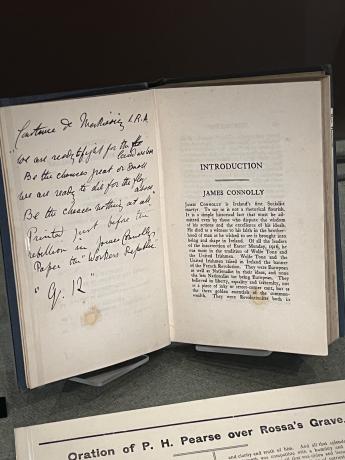 Constance de Markievicz I.R.A
We are ready to fight for the
Be the chances great or small
We are ready to die for the flag above
Be the chances nothing at all"
Printed just before the
rebellion in James Connolly's
Paper the "Workers Republic"
INTRODUCTION
JAMES CONNOLLY
JAMES CONNOLLY is Ireland's first Socialist
martyr. To say so is not a rhetorical flourish.
It is a simple historical fact that must be ad-
mitted even by those who dispute the wisdom
of his actions and the excellence of his ideals.
He died as a witness to his faith in the brother-
hood of man as he wished to see it brought into
being and shape in Ireland. Of all the leaders
of the insurrection of Easter Monday, 1916, he
was most in the tradition of Wolfe Tone and
the United Irishmen. Wolfe Tone and the
United Irishmen raised in Ireland the banner
of the French Revolution. They were European
as well as Nationalist in their ideas, and none
the less Nationalist for being European. They
believed in liberty, equality and fraternity, not
as a piece of
as three golden essentials of the common-
wealth. They were Revolutionists both in
Oration of P. H. Pearse over Rossa's Grave.
and clarity and truth of him. And all that splendid